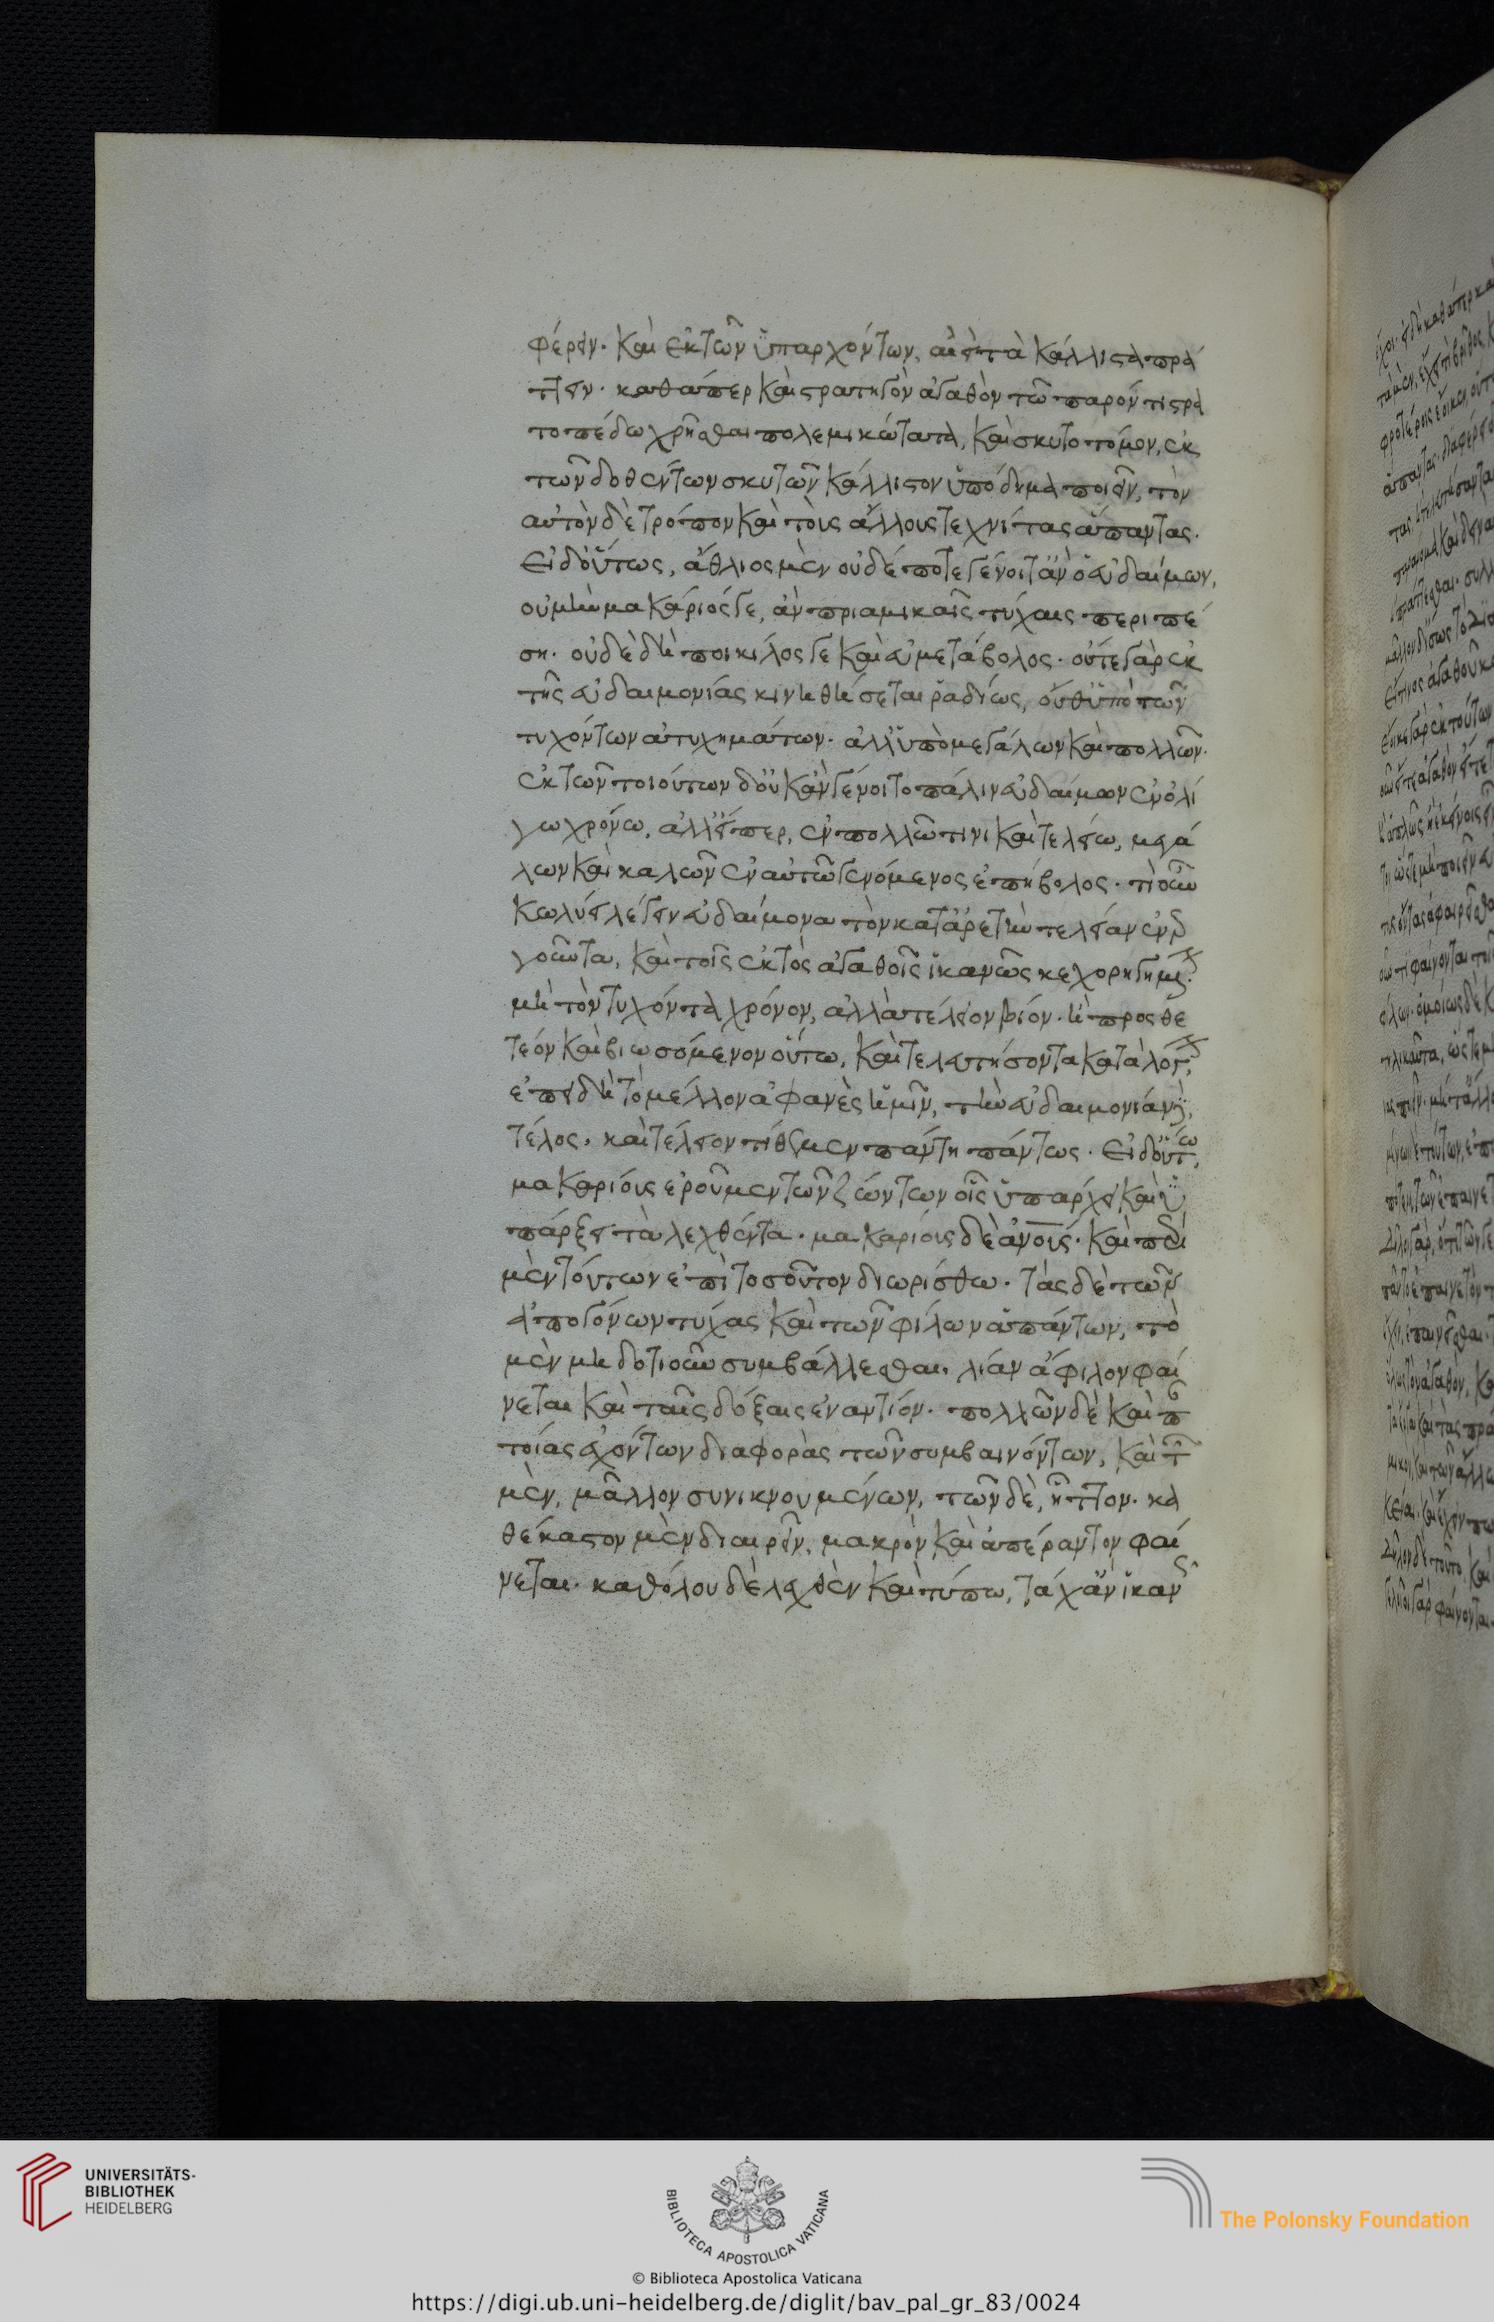 φέρειν. καὶ ἐκ τῶν ὑπαρχόντων, αἰεὶ τὰ κάλλιστα πρά
ττειν. καθάπερ καὶ στρατηγὸν ἀγαθὸν τῶ παρόντι στρα
τοπέδω χρῆσθαι πολεμικώτατα, καὶ σκυτοτόμον, ἐκ
τῶν δοθέντων σκυτῶν κάλλιστον ὑπόδημα ποιεῖν, τὸν
αὐτὸν δὲ τρόπον καὶ τοὺς ἄλλους τεχνίτας ἅπαντας.
εἰ δ' οὕτως, ἄθλιος μὲν οὐδέποτε γένοιτ' ἂν ὁ εὐδαίμων,
οὐ μὴν μακάριός γε, ἂν πριαμικαῖς τύχαις περιπέ
ση. οὐδὲ δὴ ποικίλος γε καὶ εὐμετάβολος. οὔτε γὰρ ἐκ
τῆς εὐδαιμονίας κινηθήσεται ῥαδίως, οὔθ' ὑπὸ τῶν
τυχόντων ἀτυχημάτων. ἀλλ' ὑπὸ μεγάλων καὶ πολλῶν.
ἐκ τῶν τοιούτων δ' οὐκ ἂν γένοιτο πάλιν εὐδαίμων ἐν ὀλί
γω χρόνω, ἀλλ' εἴπερ, ἐν πολλῶ τινι καὶ τελείω, μεγά
λων καὶ καλῶν ἐν αὐτῶ γενόμενος ἐπήβολος. τί οὖν
κωλύει λέγειν εὐδαίμονα τὸν κατ' ἀρετὴν τελείαν ἐνερ
γοῦντα, καὶ τοῖς ἐκτὸς ἀγαθοῖς ἱκανῶς κεχορηγημένον.
μὴ τὸν τυχόντα χρόνον, ἀλλὰ τέλειον βίον. ἢ προσθε
τέον καὶ βιωσόμενον οὕτω, καὶ τελευτήσοντα κατὰ λόγον,
ἐπειδὴ τὸ μέλλον ἀφανὲς ἡμῖν, τὴν εὐδαιμονίαν δὲ,
τέλος. καὶ τέλειον τίθεμεν πάντη πάντως. εἰ δ' οὕτω,
μακαρίους ἐροῦμεν τῶν ζώντων οἷς ὑπάρχει καὶ ὑ
πάρξει τὰ λεχθέντα. μακαρίους δὲ ἀνους. καὶ περὶ
μὲν τούτων ἐπὶ τοσοῦτον διωρίσθω. τὰς δὲ τῶν
ἀπογόνων τύχας καὶ τῶν φίλων ἁπάντων, τὸ
μὲν μηδοτιοῦν συμβάλλεσθαι, λίαν ἄφιλον φαί
νεται καὶ ταῖς δόξαις ἐναντίον. πολλῶν δὲ καὶ παν
τοίας ἐχόντων διαφορὰς τῶν συμβαινόντων, καὶ τῶν
μὲν, μᾶλλον συνικνουμένων, τῶν δὲ, ἧττον. κα
θέκαστον μὲν διαιρεῖν, μακρὸν καὶ ἀπέραντον φαί
νεται. καθόλου δὲ λεχθὲν καὶ τύπω, τάχ' ἂν ἱκανῶς
UNIVERSITÄTS-
BIBLIOTHEK
HEIDELBERG
BIBLIOTECA APOSTOLICA VATICANA
The Polonsky Foundation
© Biblioteca Apostolica Vaticana
https://digi.ub.uni-heidelberg.de/diglit/bav_pal_gr_83/0024